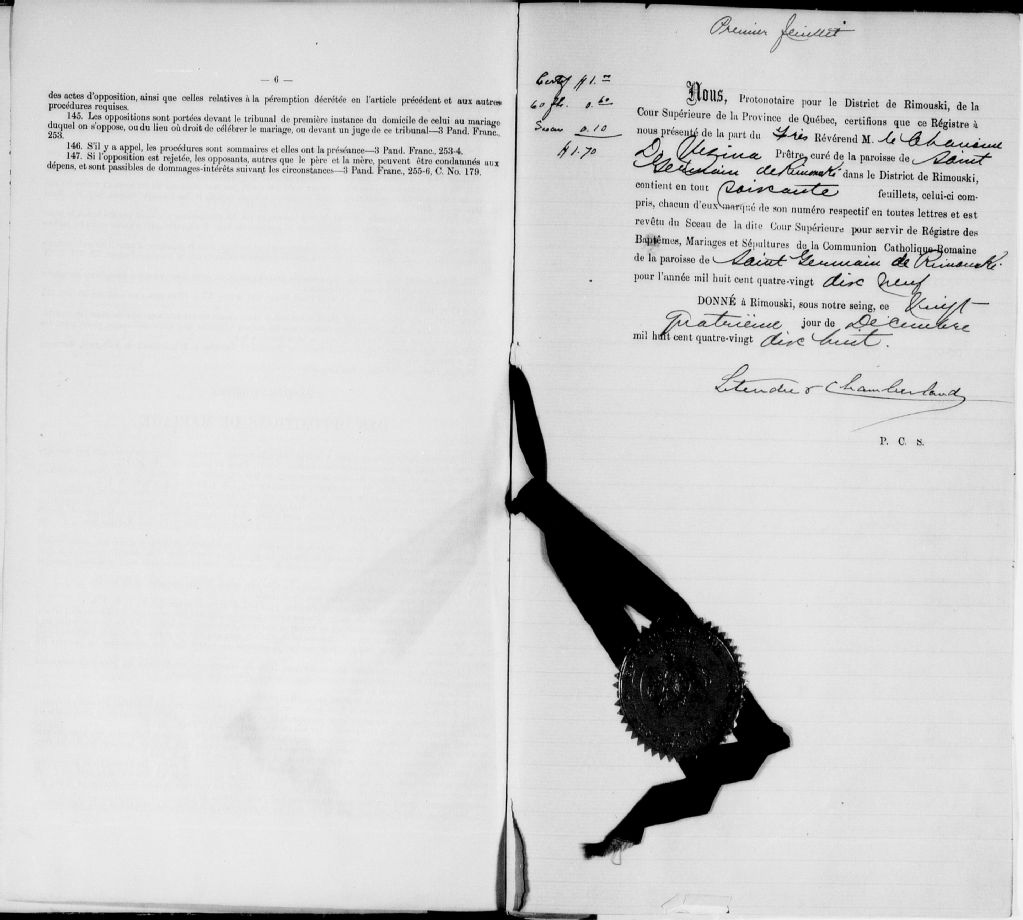 — 6 —
des actes d'opposition, ainsi que celles relatives à la péremption décrétée en l'article précédent et aux autres
procédures requises.
145. Les oppositions sont portées devant le tribunal de première instance du domicile de celui au mariage
duquel on s'oppose, ou du lieu où droit de célébrer le mariage, ou devant un juge de ce tribunal—3 Pand. Franc.,
253.
146. S'il y a appel, les procédures sont sommaires et elles ont la préséance—3 Pand. Franc., 253-4.
147. Si l'opposition est rejetée, les opposants, autres que le père et la mère, peuvent être condamnés aux
dépens, et sont passibles de dommages-intérêts suivant les circonstances—3 Pand. Franc., 255-6, C. No. 179.
Premier feuillet
Certif $1.00
60 fts. 0.60
Sceau 0.10
$1.70
Nous, Protonotaire pour le District de Rimouski, de la
Cour Supérieure de la Province de Québec, certifions que ce Régistre à
nous présenté de la part du Très Révérend M. le Chanoine
D. Vézina Prêtre, curé de la paroisse de Saint
Germain de Rimouski dans le District de Rimouski,
contient en tout soixante feuillets, celui-ci com-
pris, chacun d'eux marqué de son numéro respectif en toutes lettres et est
revêtu du Sceau de la dite Cour Supérieure pour servir de Régistre des
Baptêmes, Mariages et Sépultures de la Communion Catholique Romaine
de la paroisse de Saint Germain de Rimouski
pour l'année mil huit cent quatre-vingt dix neuf
DONNÉ à Rimouski, sous notre seing, ce Vingt
quatrième jour de Décembre
mil huit cent quatre-vingt dix huit.
Letendre & Chamberland
P. C. S.